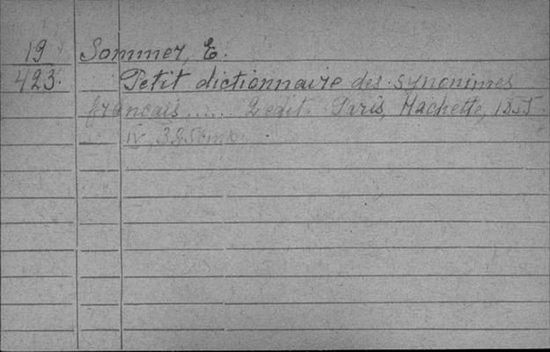 19 Sommer, E.
423. Petit dictionnaire des synonimes
français .... 2 edit. Paris, Hachette, 1855
IV, 325